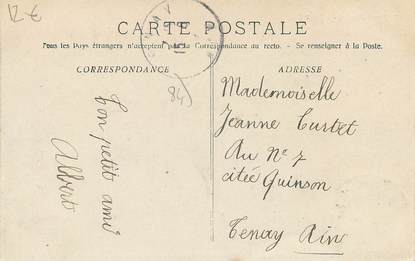 12 €
CARTE POSTALE
Tous les Pays étrangers n'acceptent pas la Correspondance au recto. — Se renseigner à la Poste.
CORRESPONDANCE
ADRESSE
(84)
ton petit ami
Albert
Mademoiselle
Jeanne Curtet
Au N° 7
citée Quinson
Tenay Ain